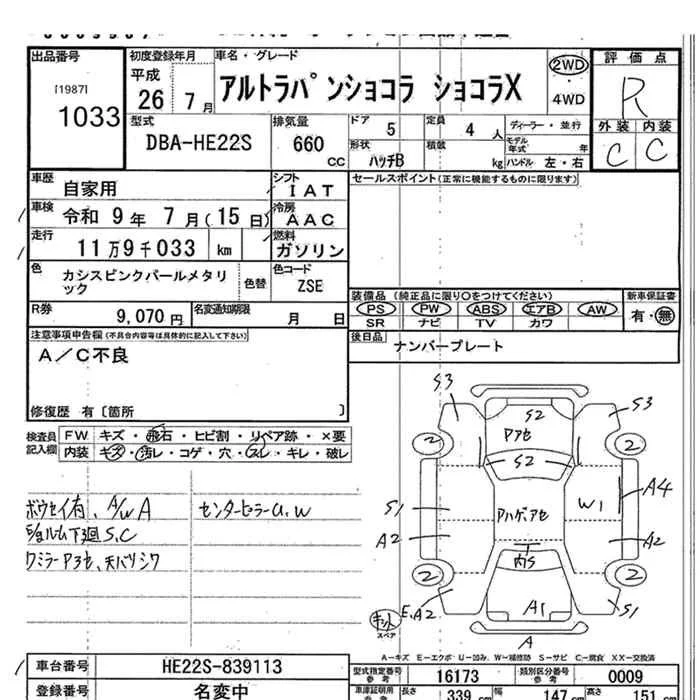 出品番号
[1987]
1033
初度登録年月
平成
26 7 月
車名・グレード
アルトラパンショコラ ショコラX
2WD
・
4WD
評価点
R
外装 内装
C C
型式
DBA-HE22S
排気量
660
CC
ドア 5
定員 4 人
形状 ハッチB
積載 kg
ディーラー・並行
モデル年式 年
ハンドル 左・右
車歴 自家用
シフト IAT
車検 令和 9 年 7 月(15 日)
冷房 AAC
走行 11 万 9 千 033 km
燃料 ガソリン
色 カシスピンクパールメタリック
色替
色コード ZSE
R券 9,070 円
名変通知期限 月 日
セールスポイント(正常に機能するものに限ります)
装備品 (純正品に限り○をつけてください)
新車保証書
PS PW ABS エアB AW
有・無
SR ナビ TV カワ
後日品
ナンバープレート
注意事項申告欄(不具合内容等は具体的に記入して下さい)
A/C不良
修復歴 有〔箇所 〕
検査員
記入欄
FW キズ・飛石・ヒビ割・リペア跡・×要
内装 キズ・汚レ・コゲ・穴・スレ・キレ・破レ
ボウセイ有、A/W A
センターピラーU、W
ショルーム下廻S、C
S3
S3
S2
Pアセ
S2
2
2
S1
A2
Pハゲ、アセ
W1
A4
A2
内S
2
2
E、A2
A1
S1
A
キット
スペア
A－キズ E－エクボ U－凹み W－補修跡 S－サビ C－腐食 XX－交換済
車台番号 HE22S-839113
型式指定番号
参考
16173
類別区分番号
参考
0009
登録番号 名変中
車庫証明用
参考
長さ 339 cm
幅 147 cm
高さ 151 cm